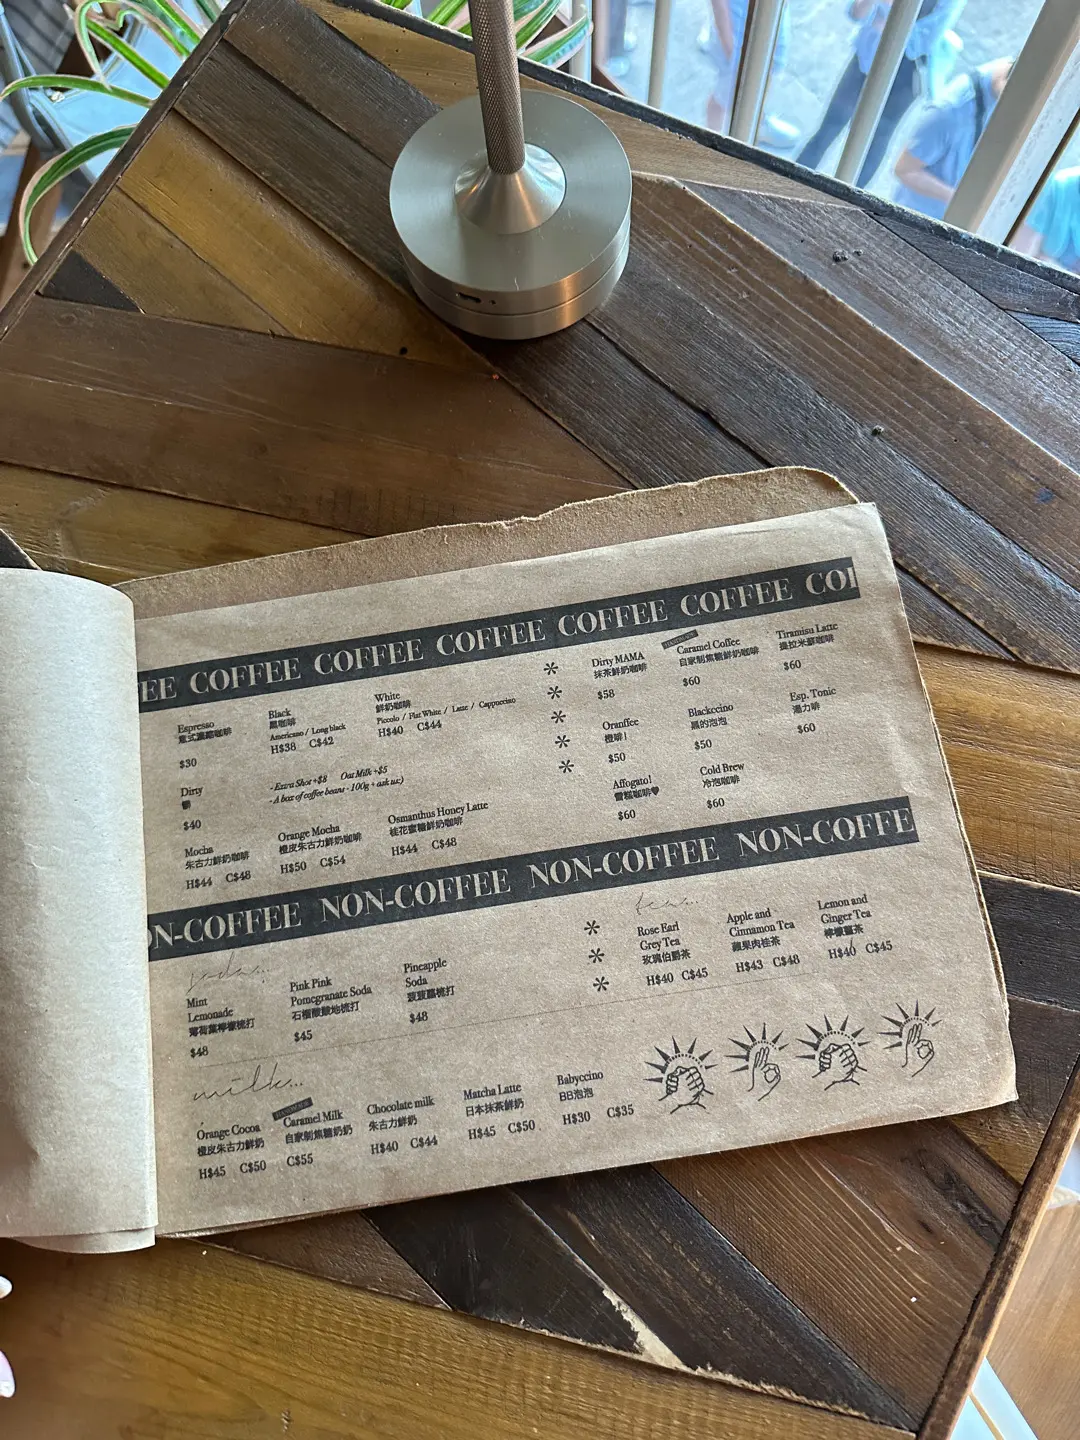 EE COFFEE COFFEE COFFEE COFFEE COFFEE COF
Espresso
意式濃縮咖啡
$30
Black
黑咖啡
Americano / Long black
H$38 C$42
White
鮮奶咖啡
Piccolo / Flat White / Latte / Cappuccino
H$40 C$44
Dirty
$40
- Extra Shot +$8 Oat Milk +$5
- A box of coffee beans - 100g + ask us:)
Mocha
朱古力鮮奶咖啡
H$44 C$48
Orange Mocha
橙皮朱古力鮮奶咖啡
H$50 C$54
Osmanthus Honey Latte
桂花蜜糖鮮奶咖啡
H$44 C$48
Dirty MAMA
抹茶鮮奶咖啡
$58
Caramel Coffee
自家制焦糖鮮奶咖啡
$60
Tiramisu Latte
提拉米蘇咖啡
$60
Oranffee
橙啡!
$50
Blackccino
黑的泡泡
$50
Esp. Tonic
湯力啡
$60
Affogato!
雪糕咖啡♥
$60
Cold Brew
冷泡咖啡
$60
ON-COFFEE NON-COFFEE NON-COFFEE NON-COFFE
soda...
Mint
Lemonade
薄荷葉檸檬梳打
$48
Pink Pink
Pomegranate Soda
石榴酸酸地梳打
$45
Pineapple
Soda
菠菠蘿梳打
$48
teas...
Rose Earl
Grey Tea
玫瑰伯爵茶
H$40 C$45
Apple and
Cinnamon Tea
蘋果肉桂茶
H$43 C$48
Lemon and
Ginger Tea
檸檬薑茶
H$40 C$45
milk...
Orange Cocoa
橙皮朱古力鮮奶
H$45 C$50
Caramel Milk
自家制焦糖奶奶
C$55
Chocolate milk
朱古力鮮奶
H$40 C$44
Matcha Latte
日本抹茶鮮奶
H$45 C$50
Babyccino
BB泡泡
H$30 C$35